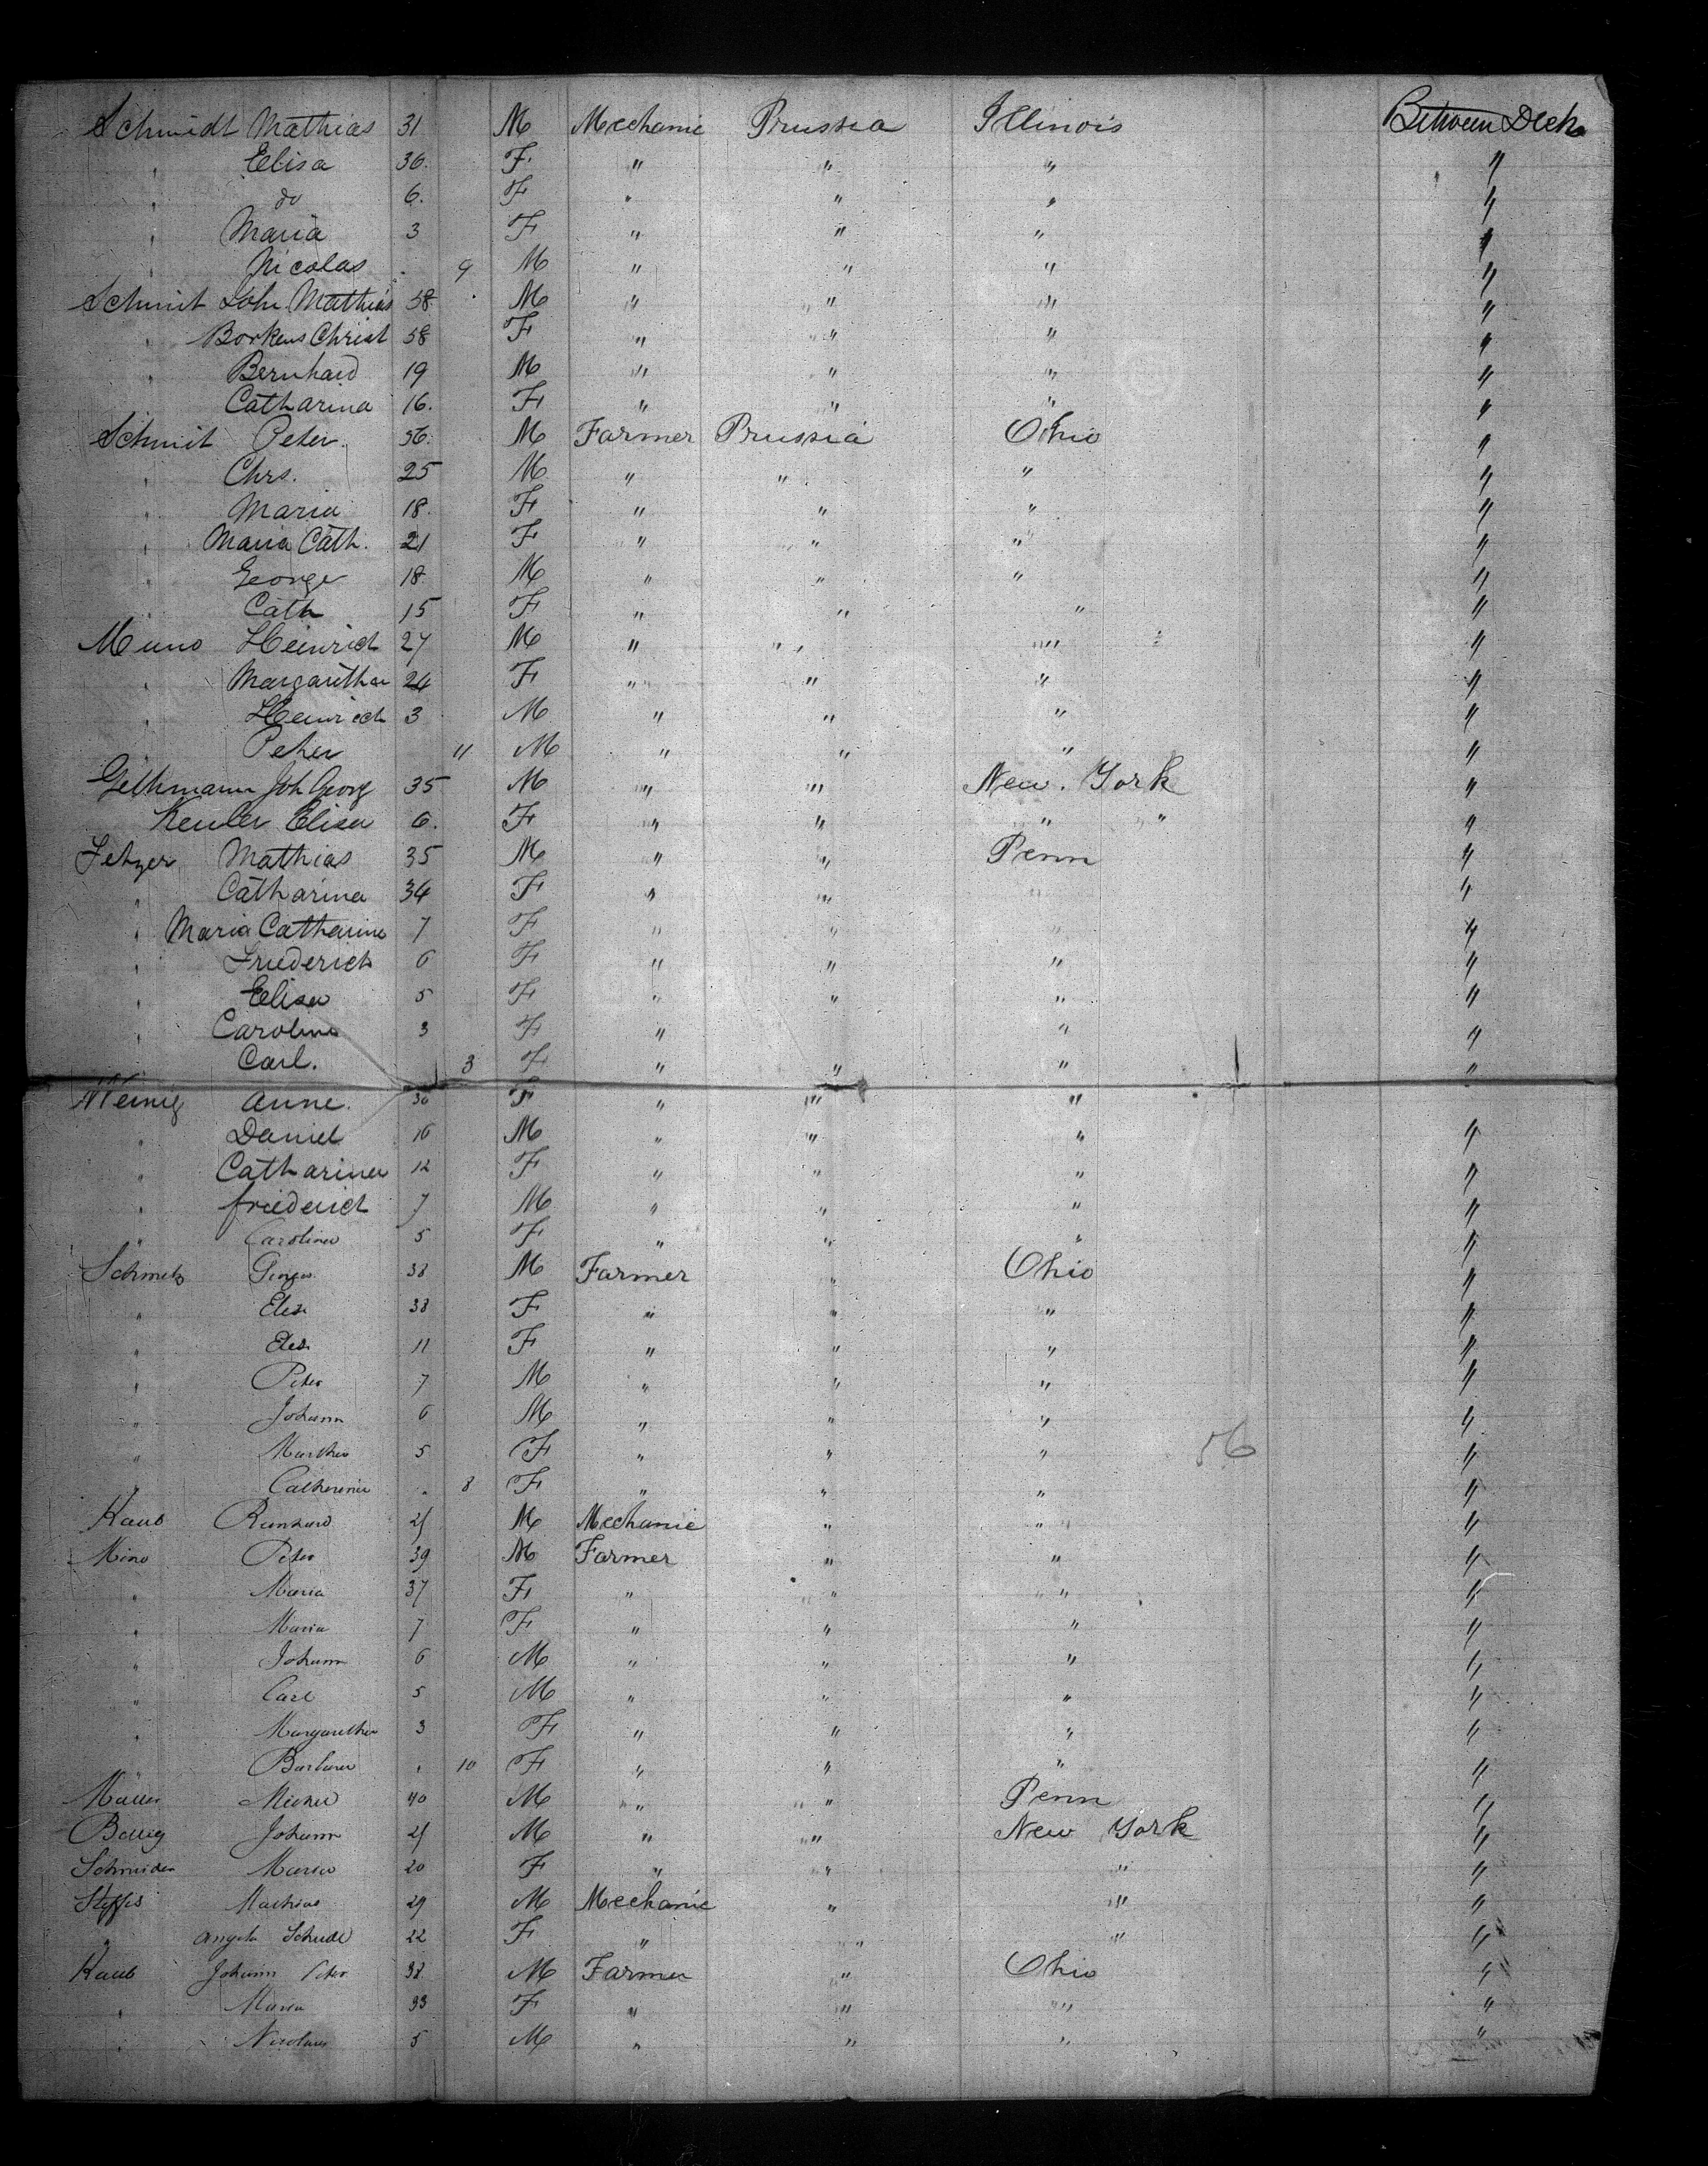 Schmidt Mathias 31 M Mechanic Prussia Illinois Between Deck
" Elisa 36. F. " " " "
" do 6. F " " " "
" Maria 3 F " " " "
" Nicolas . 9 M " " " "
Schmit Joh. Mathias 58 M " " " "
" Borkens Christ 58 F " " " "
" Bernhard 19 M " " " "
" Catharina 16. F " " " "
Schmit Peter. 56. M Farmer Prussia Ohio "
" Chrs. 25 M " " " "
" Maria 18. F " " " "
" Maria Cath. 21 F " " " "
" George 18 M " " " "
" Cath 15 F " " " "
Muno Heinrich 27 M " " " "
" Margaretha 24 F " " " "
" Heinrich 3 M " " " "
Peter 11 M " " " "
Gethmann Joh Georg 35 M " " New. York "
Keuler Elisa 6. F " " " " "
Fetzer Mathias 35 M " " Penn "
" Catharina 34 F " " "
" Maria Catharine 7 F " " " "
" Friederich 6 F " " " "
" Elisa 5 F " " " "
" Caroline 3 F " " "
Carl. 3 F " " " "
Anne. 30 F " " "
" Daniel 16 M " " " "
" Catharina 12 F " " " "
" friederich 7 M " " " "
" Carolina 5 F " " " "
Schmitz 38 M Farmer " Ohio "
" Elis 38 F " " " "
" Elis 11 F " " " "
" Peter 7 M " " " "
" Johann 6 M " " " "
" Martha 5 F " " " " 56
" Catharina . 8 F " " " "
Kaub 21 M Mechanic " " "
Mino Peter 39 M Farmer " " "
" Maria 37 F " " " "
" Maria 7 F " " " "
" Johann 6 M " " " "
" Carl 5 M " " " "
" Margaretha 3 F " " " "
" Barbara . 10 F " " " "
Müller Michel 40 M " " Penn "
Bollig Johann 21 M " " New York "
Schneider Maria 20 F " " " "
Steffes Mathias 29 M Mechanic " " "
" Angela 22 F " " " "
Kaub Johann Peter 38 M Farmer " Ohio "
" Maria 33 F " " " "
" Nicolaus 5 M " " " "